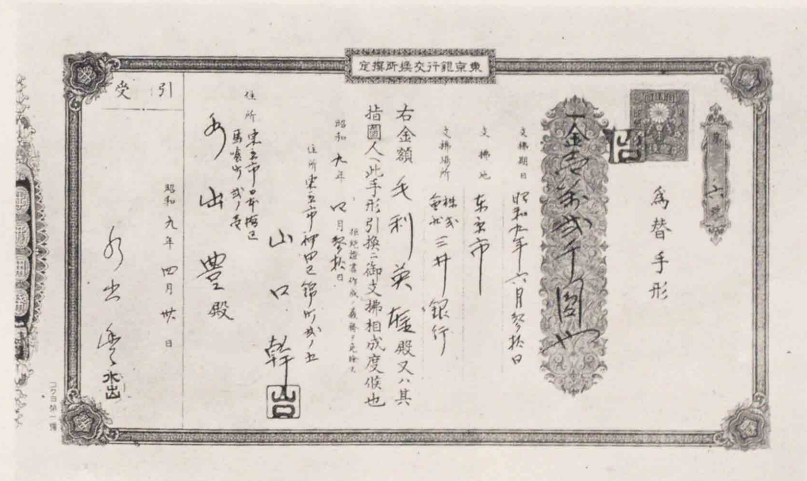 東京銀行交換所撰定
第六號
爲替手形
一金壹萬貳千圓也
山口
支拂期日 昭和九年六月參拾日
支拂地 東京市
支拂場所 株式會社三井銀行
右金額毛利英雄殿又ハ其
指圖人ヘ此手形引換ニ御支拂相成度候也
拒絶證書作成ノ義務ヲ免除ス
昭和九年四月參拾日
住所 東京市神田區錦町貳ノ五
山口幹
山口
住所 東京市日本橋區
馬喰町貳ノ壹
水出豊殿
引受
昭和九年四月卅日
水出豊
水出